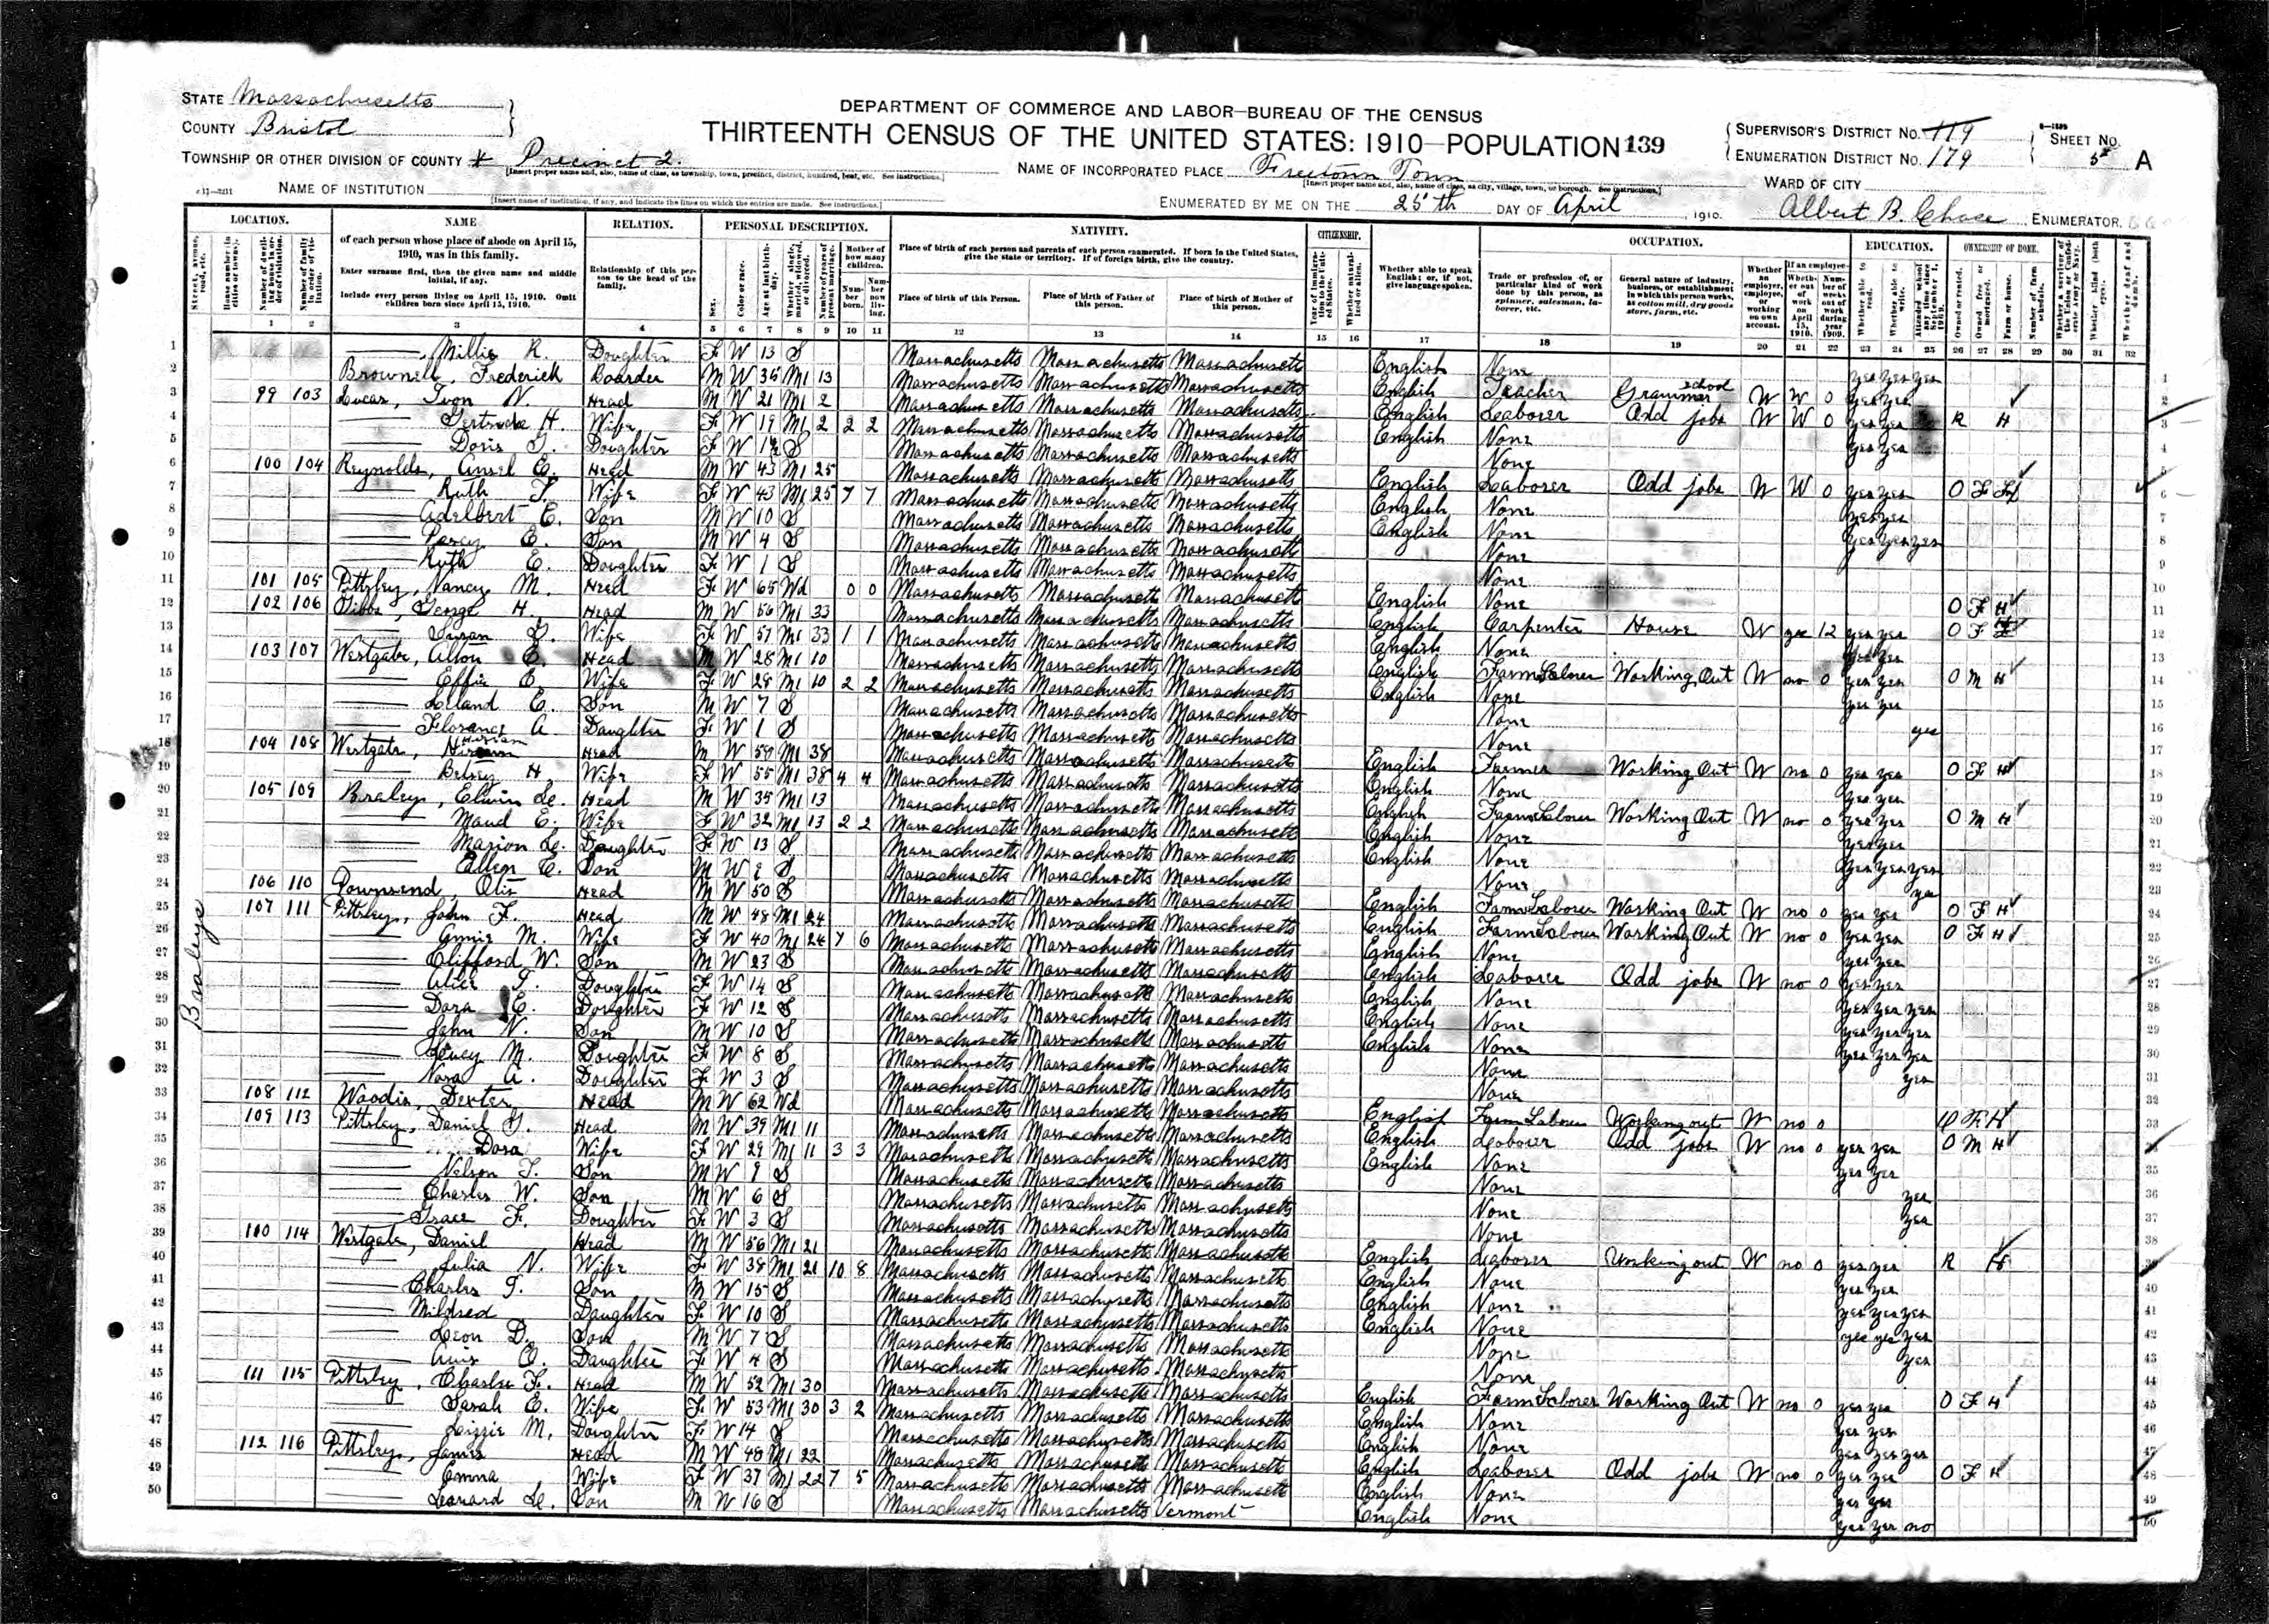 STATE Massachusetts
COUNTY Bristol
TOWNSHIP OR OTHER DIVISION OF COUNTY Precinct 2.
[Insert proper name and, also, name of class, as township, town, precinct, district, hundred, beat, etc. See instructions.]
NAME OF INSTITUTION
[Insert name of institution, if any, and indicate the lines on which the entries are made. See instructions.]
DEPARTMENT OF COMMERCE AND LABOR—BUREAU OF THE CENSUS
THIRTEENTH CENSUS OF THE UNITED STATES: 1910—POPULATION 139
NAME OF INCORPORATED PLACE Freetown Town
[Insert proper name and, also, name of class, as city, village, town, or borough. See instructions.]
ENUMERATED BY ME ON THE 25th DAY OF April, 1910.
SUPERVISOR'S DISTRICT No. 119
ENUMERATION DISTRICT No. 179
SHEET No. 5 A
WARD OF CITY
Albert B. Chase, ENUMERATOR.
LOCATION. NAME RELATION. PERSONAL DESCRIPTION. NATIVITY. CITIZENSHIP. OCCUPATION. EDUCATION. OWNERSHIP OF HOME.
of each person whose place of abode on April 15, 1910, was in this family.
Enter surname first, then the given name and middle initial, if any.
Include every person living on April 15, 1910. Omit children born since April 15, 1910.
Relationship of this person to the head of the family.
Place of birth of each person and parents of each person enumerated. If born in the United States, give the state or territory. If of foreign birth, give the country.
Place of birth of this Person. Place of birth of Father of this person. Place of birth of Mother of this person.
Whether able to speak English; or, if not, give language spoken.
Trade or profession of, or particular kind of work done by this person, as spinner, salesman, laborer, etc.
General nature of industry, business, or establishment in which this person works, as cotton mill, dry goods store, farm, etc.
1 2 3 4 5 6 7 8 9 10 11 12 13 14 15 16 17 18 19 20 21 22 23 24 25 26 27 28 29 30 31 32
Braleys
1 Millie R. Daughter F W 13 S Massachusetts Massachusetts Massachusetts English None yes yes yes
2 Brownell, Frederick Boarder M W 35 M1 13 Massachusetts Massachusetts Massachusetts English Teacher Grammar school W W 0 yes yes
3 99 103 Lucas, Head M W 21 M1 2 Massachusetts Massachusetts Massachusetts English Laborer Odd jobs W W 0 yes yes R H
4 Gertrude H. Wife F W 19 M1 2 2 2 Massachusetts Massachusetts Massachusetts English None yes yes
5 Doris Daughter F W S Massachusetts Massachusetts Massachusetts None
6 100 104 Reynolds, Ansel E. Head M W 43 M1 25 Massachusetts Massachusetts Massachusetts English Laborer Odd jobs W W 0 yes yes O F
7 Ruth Wife F W 43 M1 25 7 7 Massachusetts Massachusetts Massachusetts English None yes yes
8 Adelbert E. Son M W 10 S Massachusetts Massachusetts Massachusetts English None yes yes yes
9 Percy E. Son M W 4 S Massachusetts Massachusetts Massachusetts None
10 Ruth E. Daughter F W 1 S Massachusetts Massachusetts Massachusetts None
11 101 105 Pittsley, Nancy M. Head F W 65 Wd 0 0 Massachusetts Massachusetts Massachusetts English None O F H
12 102 106 Gibbs, George H. Head M W 56 M1 33 Massachusetts Massachusetts Massachusetts English Carpenter House W yes 12 yes yes O F
13 Susan Wife F W 51 M1 33 1 1 Massachusetts Massachusetts Massachusetts English None yes yes
14 103 107 Westgate, Alton E. Head M W 28 M1 10 Massachusetts Massachusetts Massachusetts English Farm Laborer Working Out W no 0 yes yes O M H
15 Effie E. Wife F W 28 M1 10 2 2 Massachusetts Massachusetts Massachusetts English None yes yes
16 Lelland E. Son M W 7 S Massachusetts Massachusetts Massachusetts None yes
17 Florance A Daughter F W 1 S Massachusetts Massachusetts Massachusetts None
18 104 108 Westgate, Hiram Head M W M1 38 Massachusetts Massachusetts Massachusetts English Farmer Working Out W no 0 yes yes O F H
19 Betsey H Wife F W 55 M1 38 4 4 Massachusetts Massachusetts Massachusetts English None yes yes
20 105 109 Braley, Elwin Le. Head M W 35 M1 13 Massachusetts Massachusetts Massachusetts English Farm Laborer Working Out W no 0 yes yes O M H
21 Maud E. Wife F W 32 M1 13 2 2 Massachusetts Massachusetts Massachusetts English None yes yes
22 Marion Le. Daughter F W 13 S Massachusetts Massachusetts Massachusetts English None yes yes yes
23 Allen E. Son M W S Massachusetts Massachusetts Massachusetts None yes
24 106 110 Townsend, Otis Head M W 50 S Massachusetts Massachusetts Massachusetts English Farm Laborer Working Out W no 0 yes yes O F H
25 107 111 Pittsley, John F. Head M W 48 M1 24 Massachusetts Massachusetts Massachusetts English Farm Laborer Working Out W no 0 yes yes O F H
26 Annie M. Wife F W 40 M1 24 7 6 Massachusetts Massachusetts Massachusetts English None yes yes
27 Clifford W. Son M W 23 S Massachusetts Massachusetts Massachusetts English Laborer Odd jobs W no 0 yes yes
28 Alice Daughter F W 14 S Massachusetts Massachusetts Massachusetts English None yes yes yes
29 Dora E. Daughter F W 12 S Massachusetts Massachusetts Massachusetts English None yes yes yes
30 John N. Son M W 10 S Massachusetts Massachusetts Massachusetts English None yes yes yes
31 M. Daughter F W 8 S Massachusetts Massachusetts Massachusetts None yes
32 Nora A. Daughter F W 3 S Massachusetts Massachusetts Massachusetts None
33 108 112 Woodis, Dexter Head M W 62 Wd Massachusetts Massachusetts Massachusetts English Farm Laborer Working out W no 0 O F H
34 109 113 Pittsley, Daniel Head M W 39 M1 11 Massachusetts Massachusetts Massachusetts English Laborer Odd jobs W no 0 yes yes O M H
35 Dora Wife F W 29 M1 11 3 3 Massachusetts Massachusetts Massachusetts English None yes yes
36 Nelson Son M W S Massachusetts Massachusetts Massachusetts None yes
37 Charles W. Son M W 6 S Massachusetts Massachusetts Massachusetts None yes
38 Grace F. Daughter F W 3 S Massachusetts Massachusetts Massachusetts None
39 110 114 Westgate, Daniel Head M W 56 M1 21 Massachusetts Massachusetts Massachusetts English Laborer Working out W no 0 yes yes R H
40 Julia N. Wife F W 38 M1 21 10 8 Massachusetts Massachusetts Massachusetts English None yes yes
41 Charles Son M W 15 S Massachusetts Massachusetts Massachusetts English None yes yes yes
42 Mildred Daughter F W 10 S Massachusetts Massachusetts Massachusetts English None yes yes yes
43 Leon D. Son M W 7 S Massachusetts Massachusetts Massachusetts None yes
44 Daughter F W 4 S Massachusetts Massachusetts Massachusetts None
45 111 115 Pittsley, Charles F. Head M W 52 M1 30 Massachusetts Massachusetts Massachusetts English Farm Laborer Working Out W no 0 yes yes O F H
46 Sarah E. Wife F W 53 M1 30 3 2 Massachusetts Massachusetts Massachusetts English None yes yes
47 Lizzie M. Daughter F W 14 S Massachusetts Massachusetts Massachusetts English None yes yes yes
48 112 116 Pittsley, James Head M W 48 M1 22 Massachusetts Massachusetts Massachusetts English Laborer Odd jobs W no 0 yes yes O F H
49 Emma Wife F W 37 M1 22 7 5 Massachusetts Massachusetts Massachusetts English None yes yes
50 Leonard Le. Son M W 16 S Massachusetts Massachusetts Vermont English None yes yes no